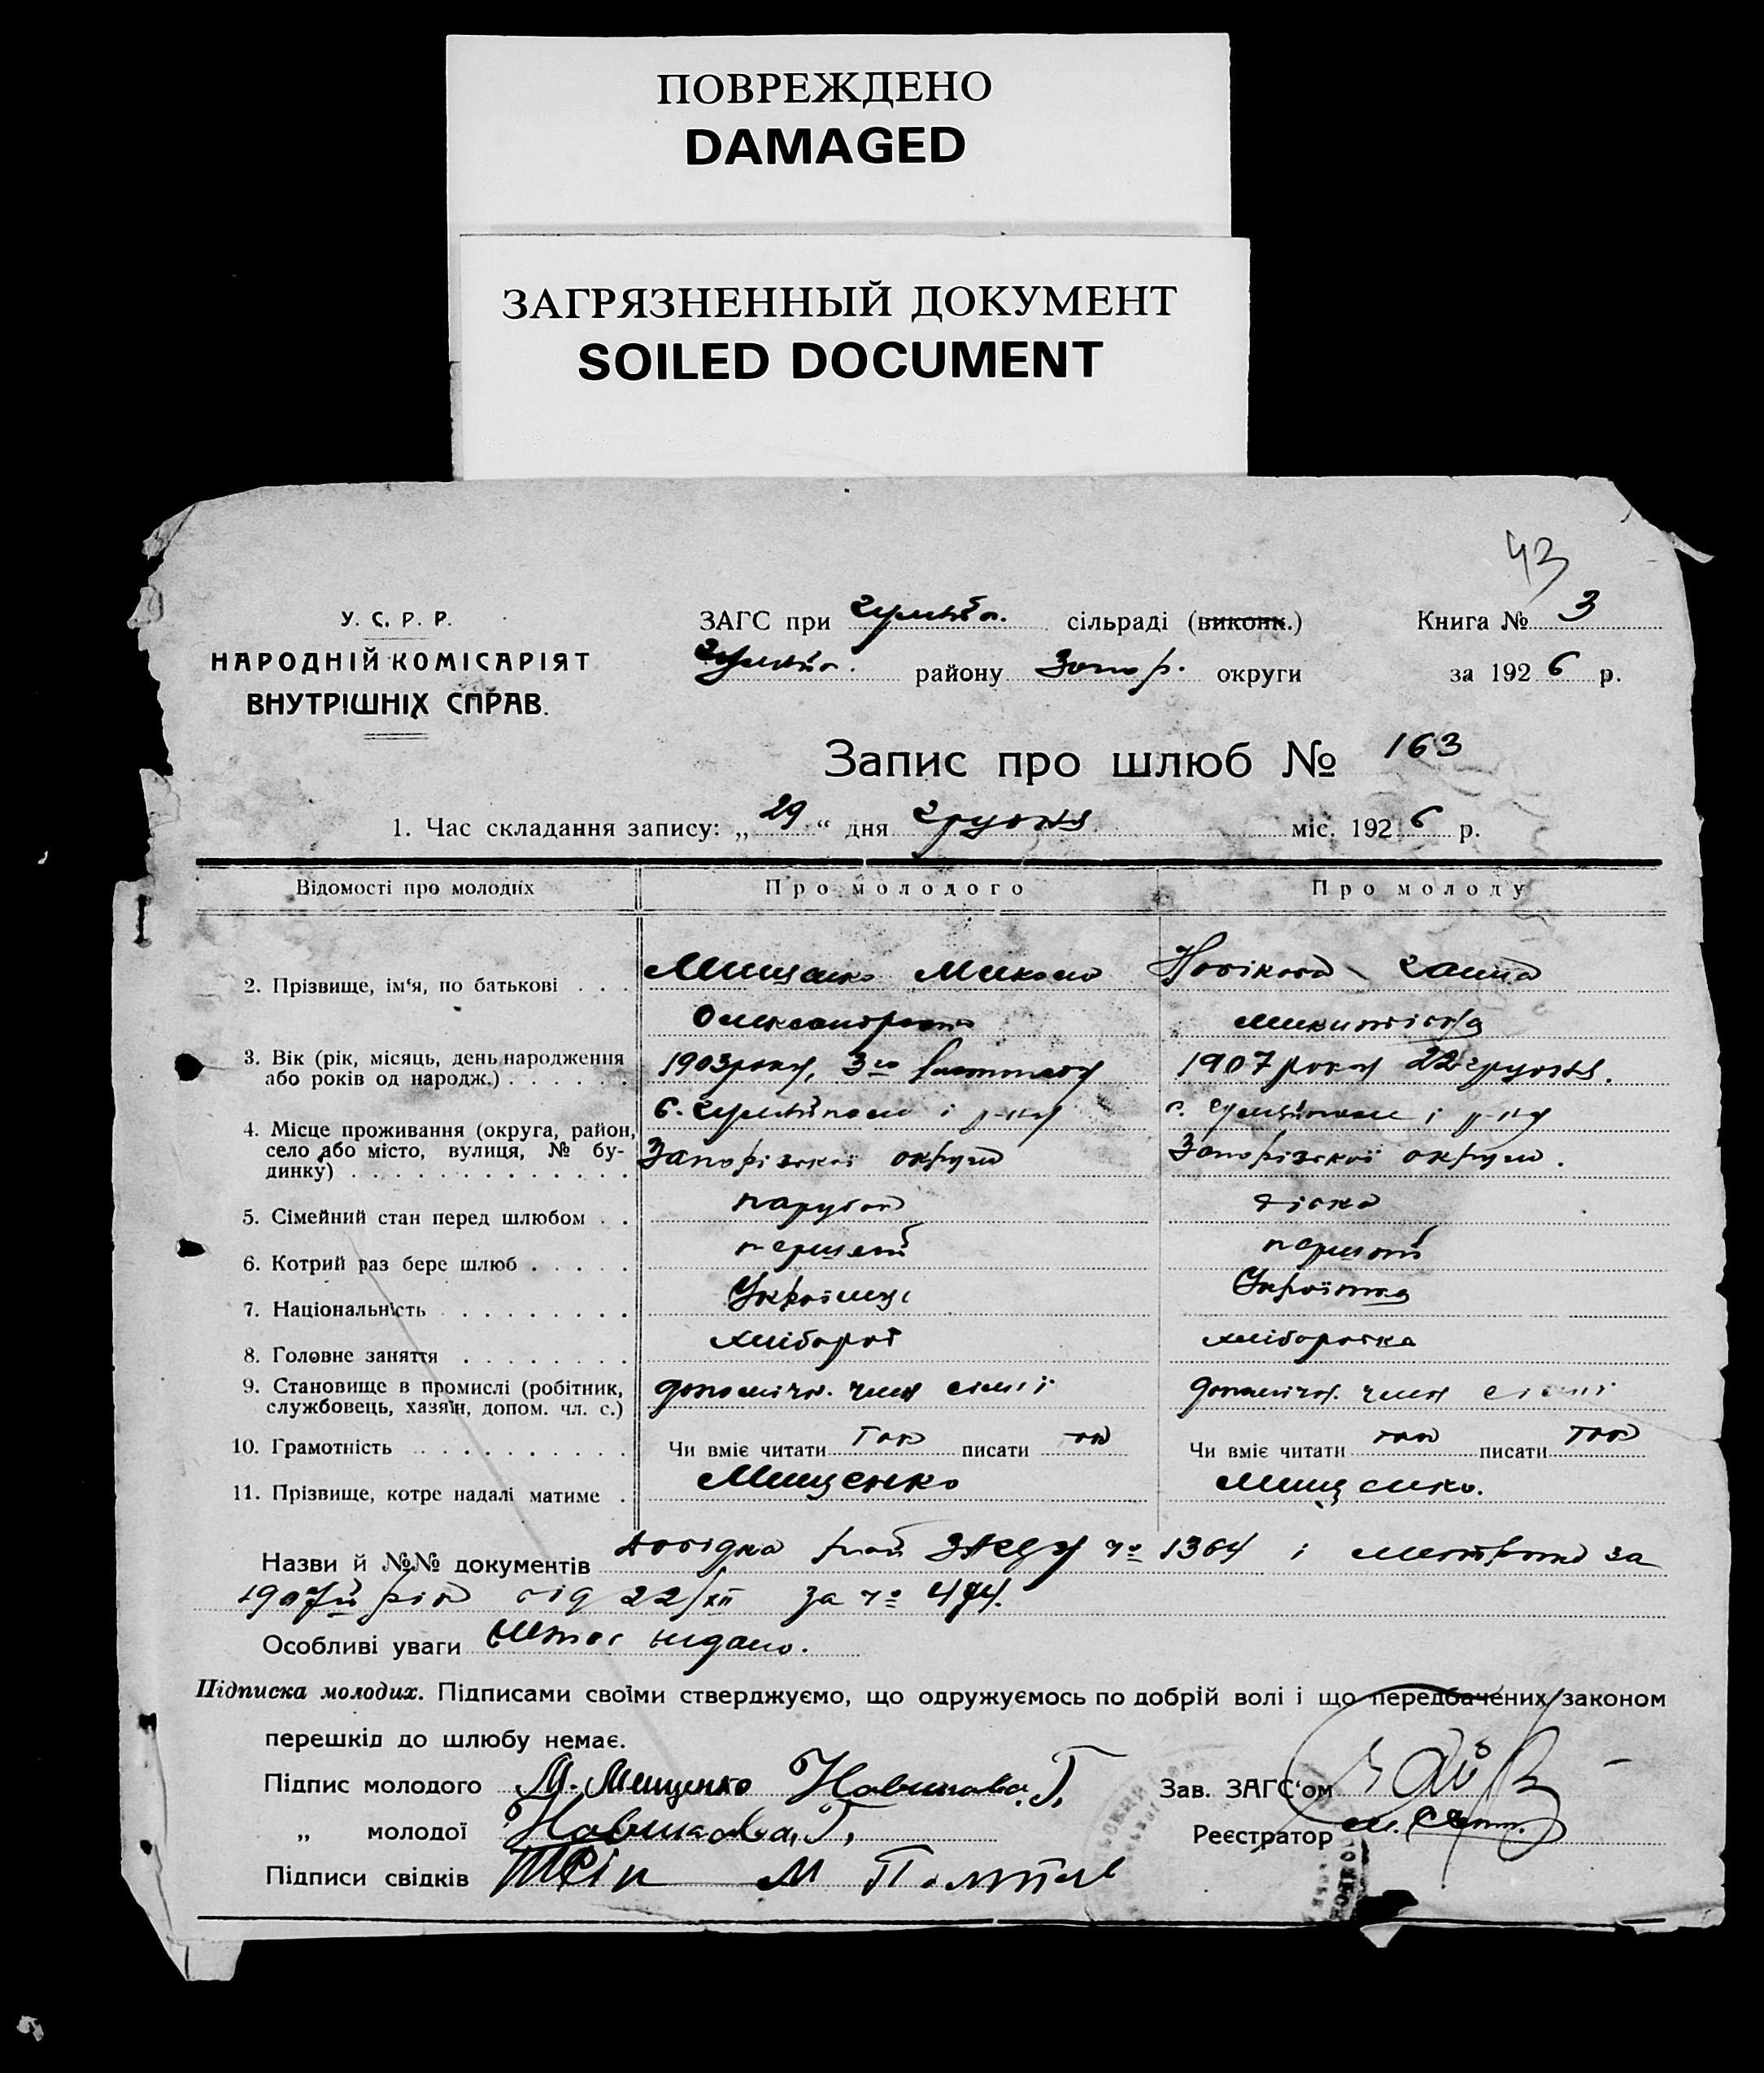 ПОВРЕЖДЕНО
DAMAGED
ЗАГРЯЗНЕННЫЙ ДОКУМЕНТ
SOILED DOCUMENT
43
У. С. Р. Р.
НАРОДНІЙ КОМІСАРІЯТ
ВНУТРІШНІХ СПРАВ.
ЗАГС при Гуляйп. сільраді (виконк.)
Гуляйп. району Запор. округи
Книга № 3
за 1926 р.
Запис про шлюб № 163
1. Час складання запису: „29“ дня грудня міс. 1926 р.
Відомості про молодих Про молодого Про молоду
2. Прізвище, ім‘я, по батькові . . . Мищенко Микола Новікова Ганна
Олександров Микитівна
3. Вік (рік, місяць, день народження 1903 року, 3го лютого 1907 року 22 грудня.
або років од народж.) . . . . . .
с. Гуляйполе і р-ну с. Гуляйполе і р-ну
4. Місце проживання (округа, район, Запорізької округи Запорізької округи.
село або місто, вулиця, № бу-
динку) . . . . . . . . . . . . .
5. Сімейний стан перед шлюбом . . парубок дівка
6. Котрий раз бере шлюб . . . . . перший перший
7. Національність . . . . . . . . Українець Українка
8. Головне заняття . . . . . . . хлібороб хліборобка
9. Становище в промислі (робітник, допоміжн. член сімї допоміжн. член сімї
службовець, хазяїн, допом. чл. с.)
10. Грамотність . . . . . . . . . . Чи вміє читати так писати так Чи вміє читати так писати так
11. Прізвище, котре надалі матиме . Мищенко Мищенко.
Назви й №№ документів Довідка рай ЗАГСу № 1364 і метрика за
1907й рік від 22/XII за № 474.
Особливі уваги Витяг видано.
Підписка молодих. Підписами своїми стверджуємо, що одружуємось по добрій волі і що передбачених законом
перешкід до шлюбу немає.
Підпис молодого М. Мищенко Новикова. Г.
Зав. ЗАГС‘ом
„ молодої Новикова, Г.
Реєстратор
Підписи свідків М